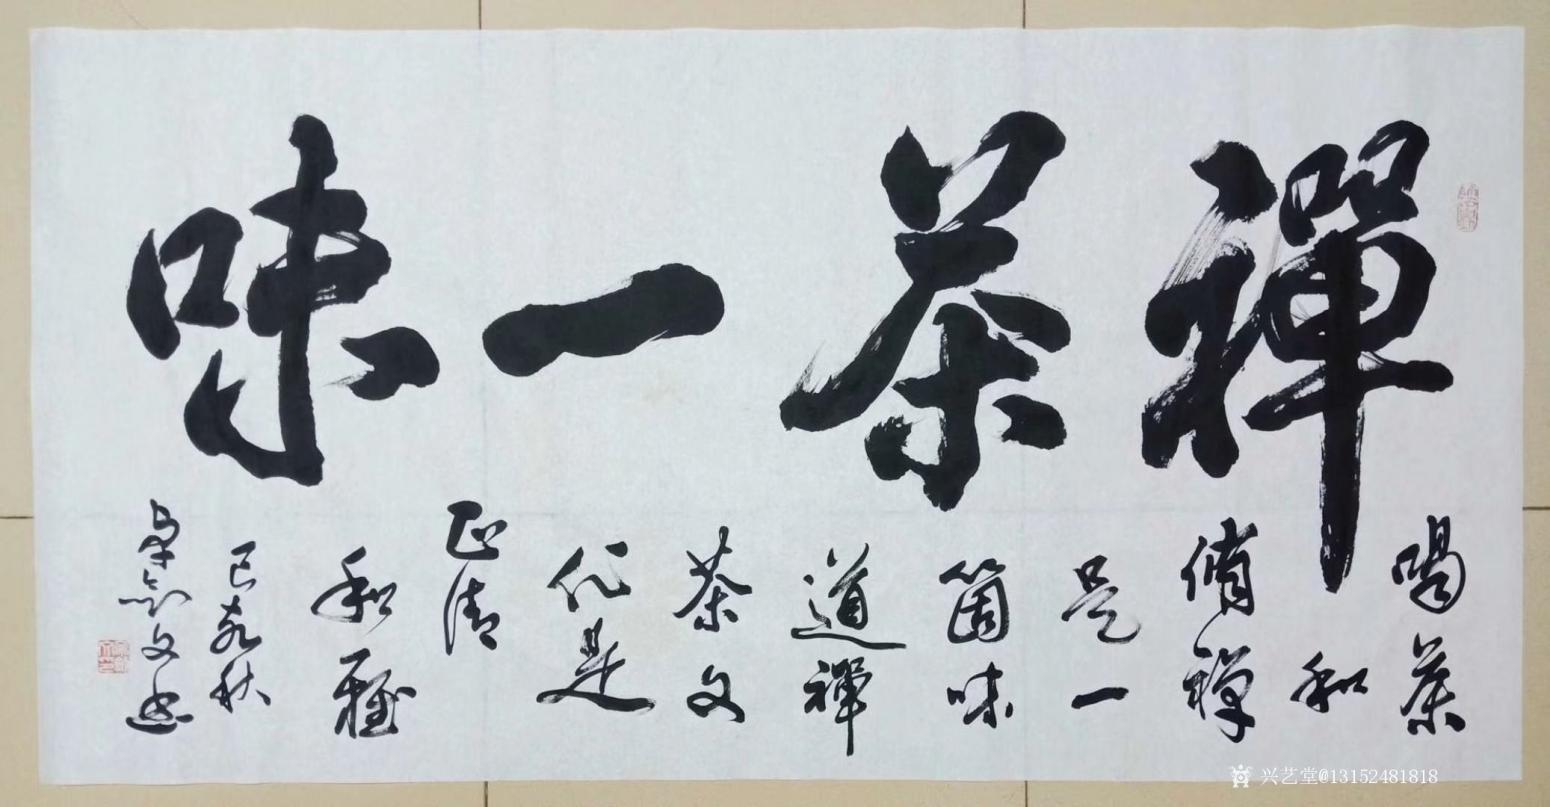 禪茶一味
喝茶
和
脩禪
是一
箇味
道禪
茶文
化是
正清
和雅
己亥秋
文書
兴艺堂@13152481818